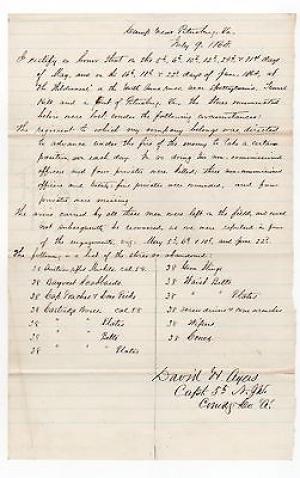 Camp Near Petersburg, Va.
July 9. 1864.
I certify on honor that on the 5th, 6th, 10th, 12th, & 31st days
of May, and on the 16th, & 22d days of June 1864, at
the Wilderness in the near Spottsylvania,
and of Petersburg Va. the stores enumerated
below were lost under the following circumstances:
The regiment to which my company belongs was directed
to advance under the fire of the enemy to take a certain
position on each day. In so doing non-commissioned
officers and four privates were killed, three non-commissioned
officers and twenty-five privates were wounded, and four
privates were missing.
The arms carried by all these men were left on the field, and were
not subsequently be recovered, as we were repulsed in four
of the engagements, viz. May 5th, 6th & 10th, and June 22d.
The following is a list of the stores so abandoned:
38 Muskets Cal. 58.
38 Bayonet Scabbards
38 Cap Pouches & Cone Picks
38 Cartridge Boxes Cal. 58
38 " " Plates
38 " " Belts
38 " " Plates
38 Gun Slings
38 Waist Belts
38 " " Plates
38 Screw drivers & cone wrenches
38 Wipers
38 Cones
David H. Ayers
Capt. 5th N.J.
Comdg Co. A.